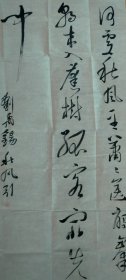 何處秋風至蕭々送雁群
朝来入庭樹孤客最先
闻
劉禹錫秋風引